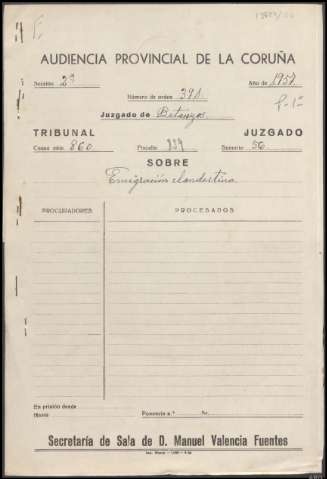 AUDIENCIA PROVINCIAL DE LA CORUÑA
Sección 2ª Año de 1957
Número de orden 391
Juzgado de Betanzos
TRIBUNAL JUZGADO
Causa núm. 860 Rosello 889 Sumario 56
SOBRE
Emigración clandestina
PROCURADORES PROCESADOS
En prisión desde
Hasta Ponencia n.º Sr.
Secretaría de Sala de D. Manuel Valencia Fuentes